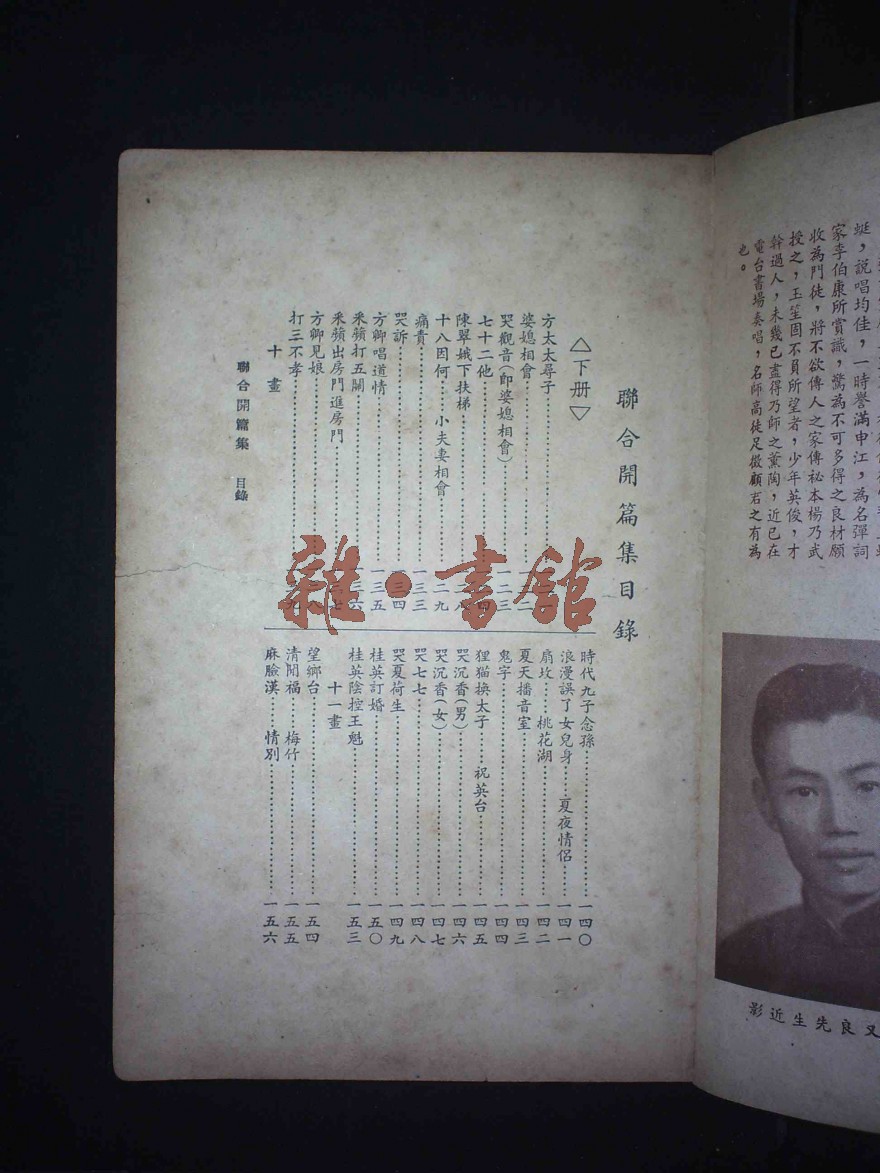 蜓，說唱均佳，一時譽滿申江，為名彈詞
家李伯康所賞識，驚為不可多得之良材願
收為門徒，將不欲傳人之家傳祕本楊乃武
授之，玉笙固不負所望者，少年英俊，才
幹過人，未幾已盡得乃師之薰陶，近已在
電台書場奏唱，名師高徒足徵顧君之有為
也。
又良先生近影
聯合開篇集目錄
△下册▽
方太太尋子
婆媳相會……二
哭觀音(即婆媳相會)……二三
七十二他……四
陳翠娥下扶梯……八
十八因何……小夫妻相會……一二九
痛責……一三三
哭訴……一三四
方卿唱道情……一三五
釆蘋打五關……一三六
釆蘋出房門進房門……七
方卿見娘……八
打三不孝……九
十畫
時代九子念孫……一四〇
浪漫誤了女兒身……夏夜情侶……一四一
扇坟……桃花湖……一四二
夏天播音室……一四三
鬼字……一四四
狸猫換太子……祝英台……一四五
哭沉香(男)……一四六
哭沉香(女)……一四七
哭七七……一四八
哭夏荷生……一四九
桂英訂婚……一五〇
桂英陰控王魁……一五三
十一畫
望鄉台……一五四
清閒福……梅竹……一五五
麻臉漢……情別……一五六
聯合開篇集 目錄
雜·書館